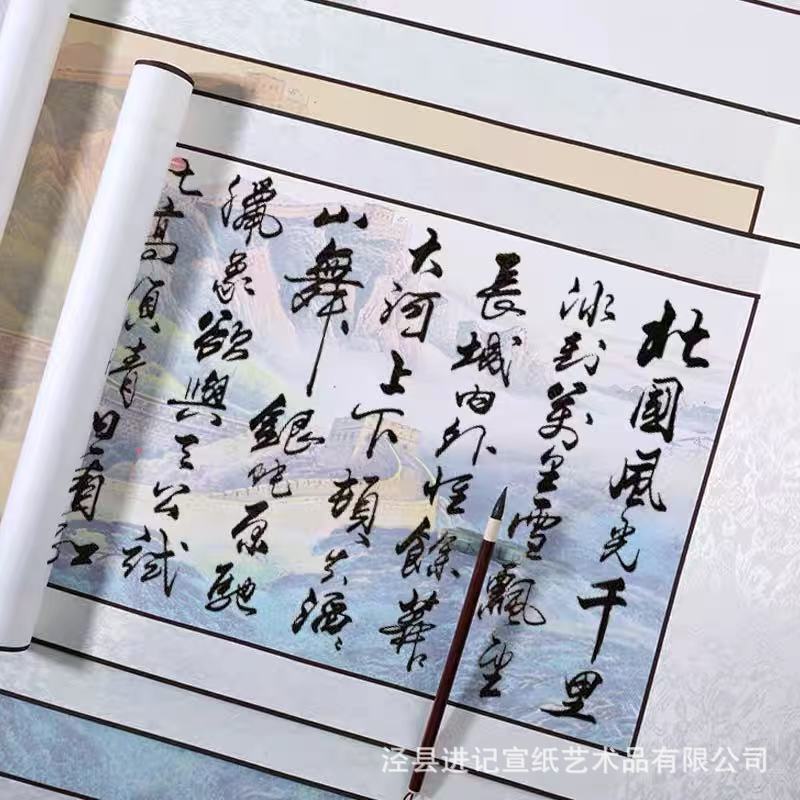 北國風光千里
冰封萬里雪飄望
長城内外惟餘莽〻
大河上下頓失滔〻
山舞銀蛇原馳
臘象欲與天公試
高須晴日看紅
泾县进记宣纸艺术品有限公司